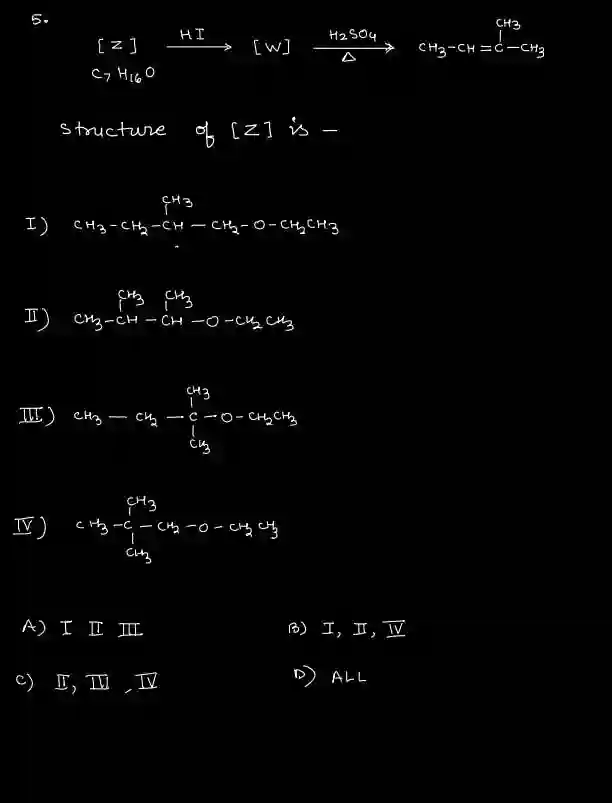 5.
[Z] HI [W] H2SO4 Δ CH3-CH=C-CH3
CH3
C7H16O
structure of [Z] is -
CH3
I) CH3-CH2-CH-CH2-O-CH2CH3
CH3 CH3
II) CH3-CH-CH-O-CH2CH3
CH3
III) CH3-CH2-C-O-CH2CH3
CH3
CH3
IV) CH3-C-CH2-O-CH2CH3
CH3
A) I II III B) I, II, IV
C) II, III, IV D) ALL